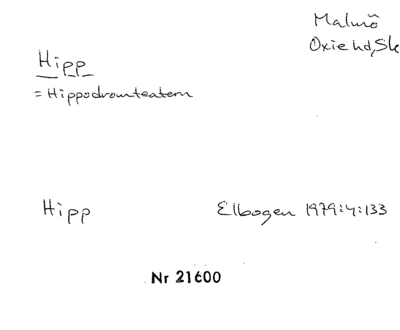 Malmö
Oxie hd, Sk
Hipp
= Hippodromteatern
Hipp Elbogen 1979:4:133
Nr 21600